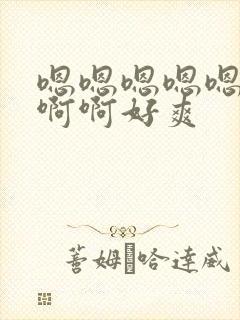 嗯嗯嗯嗯嗯
啊啊好爽
姆 哈达威